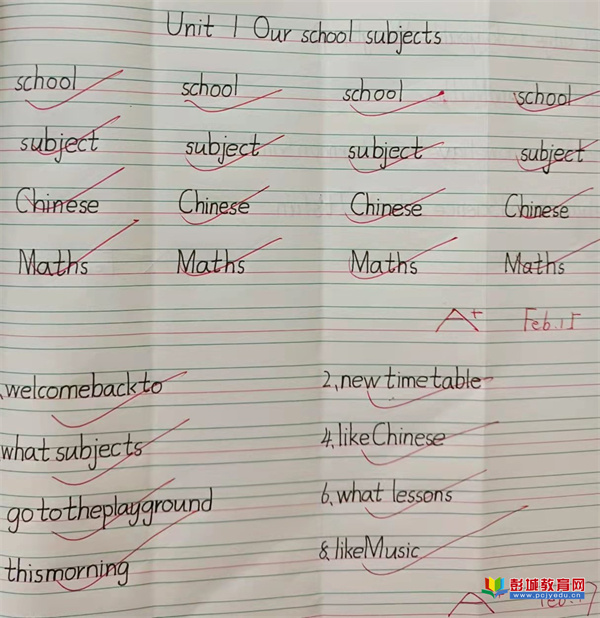 Unit 1 Our school subjects
school school school school
subject subject subject subject
Chinese Chinese Chinese Chinese
Maths Maths Maths Maths
A+ Feb.15
welcome back to 2, new timetable
what subjects 4. like Chinese
go to the playground 6. what lessons
this morning 8. like Music
彭城教育网
www.pcjyedu.cn
A Feb.17